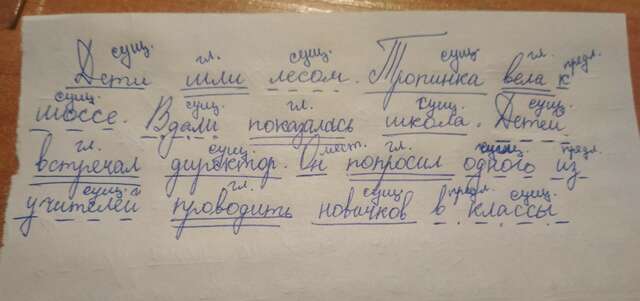 сущ. гл. сущ. сущ гл. предл.
Дети шли лесом. Тропинка вела к
сущ. сущ. гл. сущ. сущ.
шоссе. Вдали показалась школа. Детей
гл. сущ. мест. гл. предл.
встречал директор. Он попросил одного из
сущ. гл. сущ предл. сущ.
учителей проводить новичков в классы